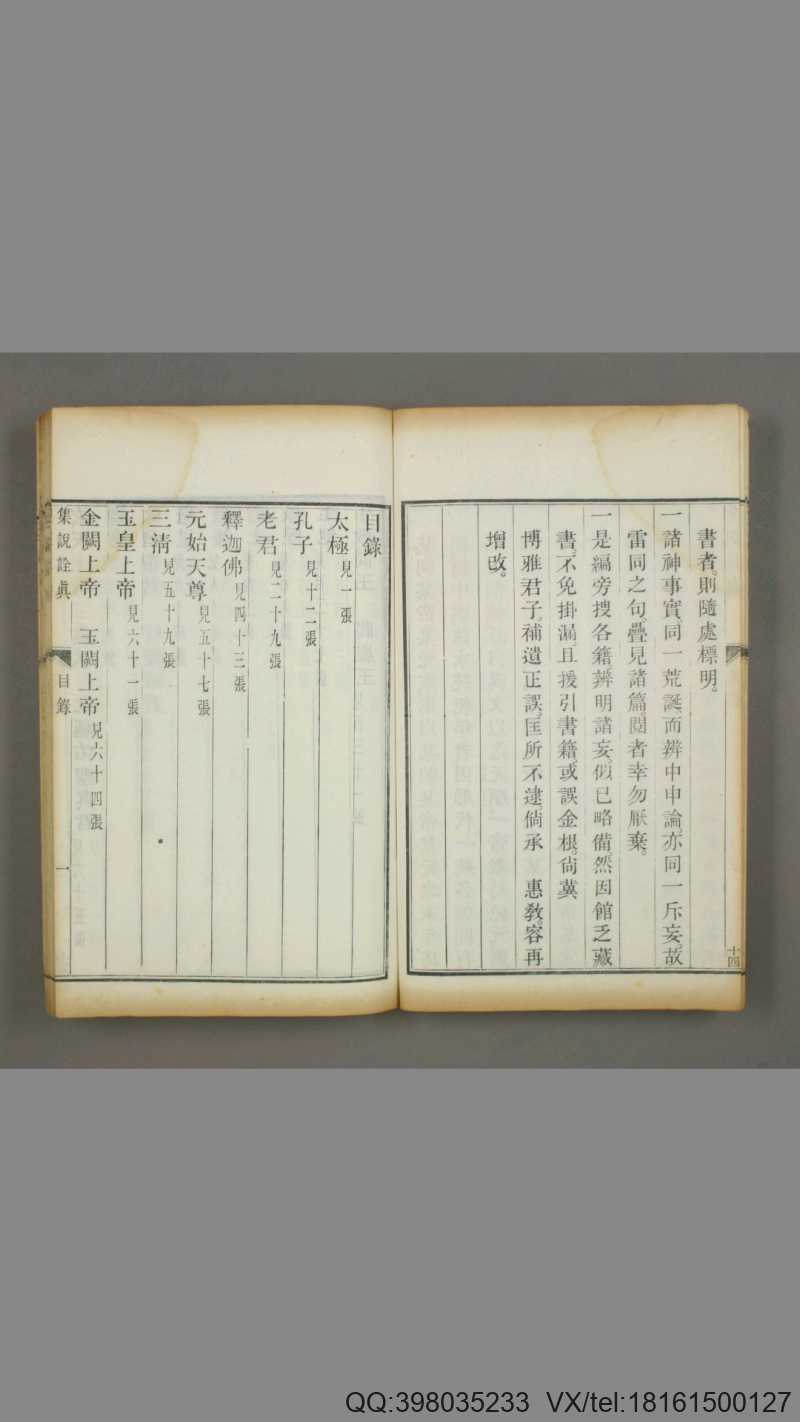 書者。則隨處標明。
一諸神事實。同一荒誕。而辨中申論。亦同一斥妄。故
雷同之句。疊見諸篇。閱者幸勿厭棄。
一是編旁搜各籍。辨明諸妄。似已略備。然因館乏藏
書。不免掛漏。且援引書籍。或誤金根。尙冀
博雅君子。補遺正誤。匡所不逮。倘承 惠敎。容再
增改。
十四
目錄
太極見一張
孔子見十二張
老君見二十九張
釋迦佛見四十三張
元始天尊見五十七張
三淸見五十九張
玉皇上帝見六十一張
金闕上帝 玉闕上帝見六十四張
集說詮眞 目錄 一
QQ:398035233 VX/tel:18161500127